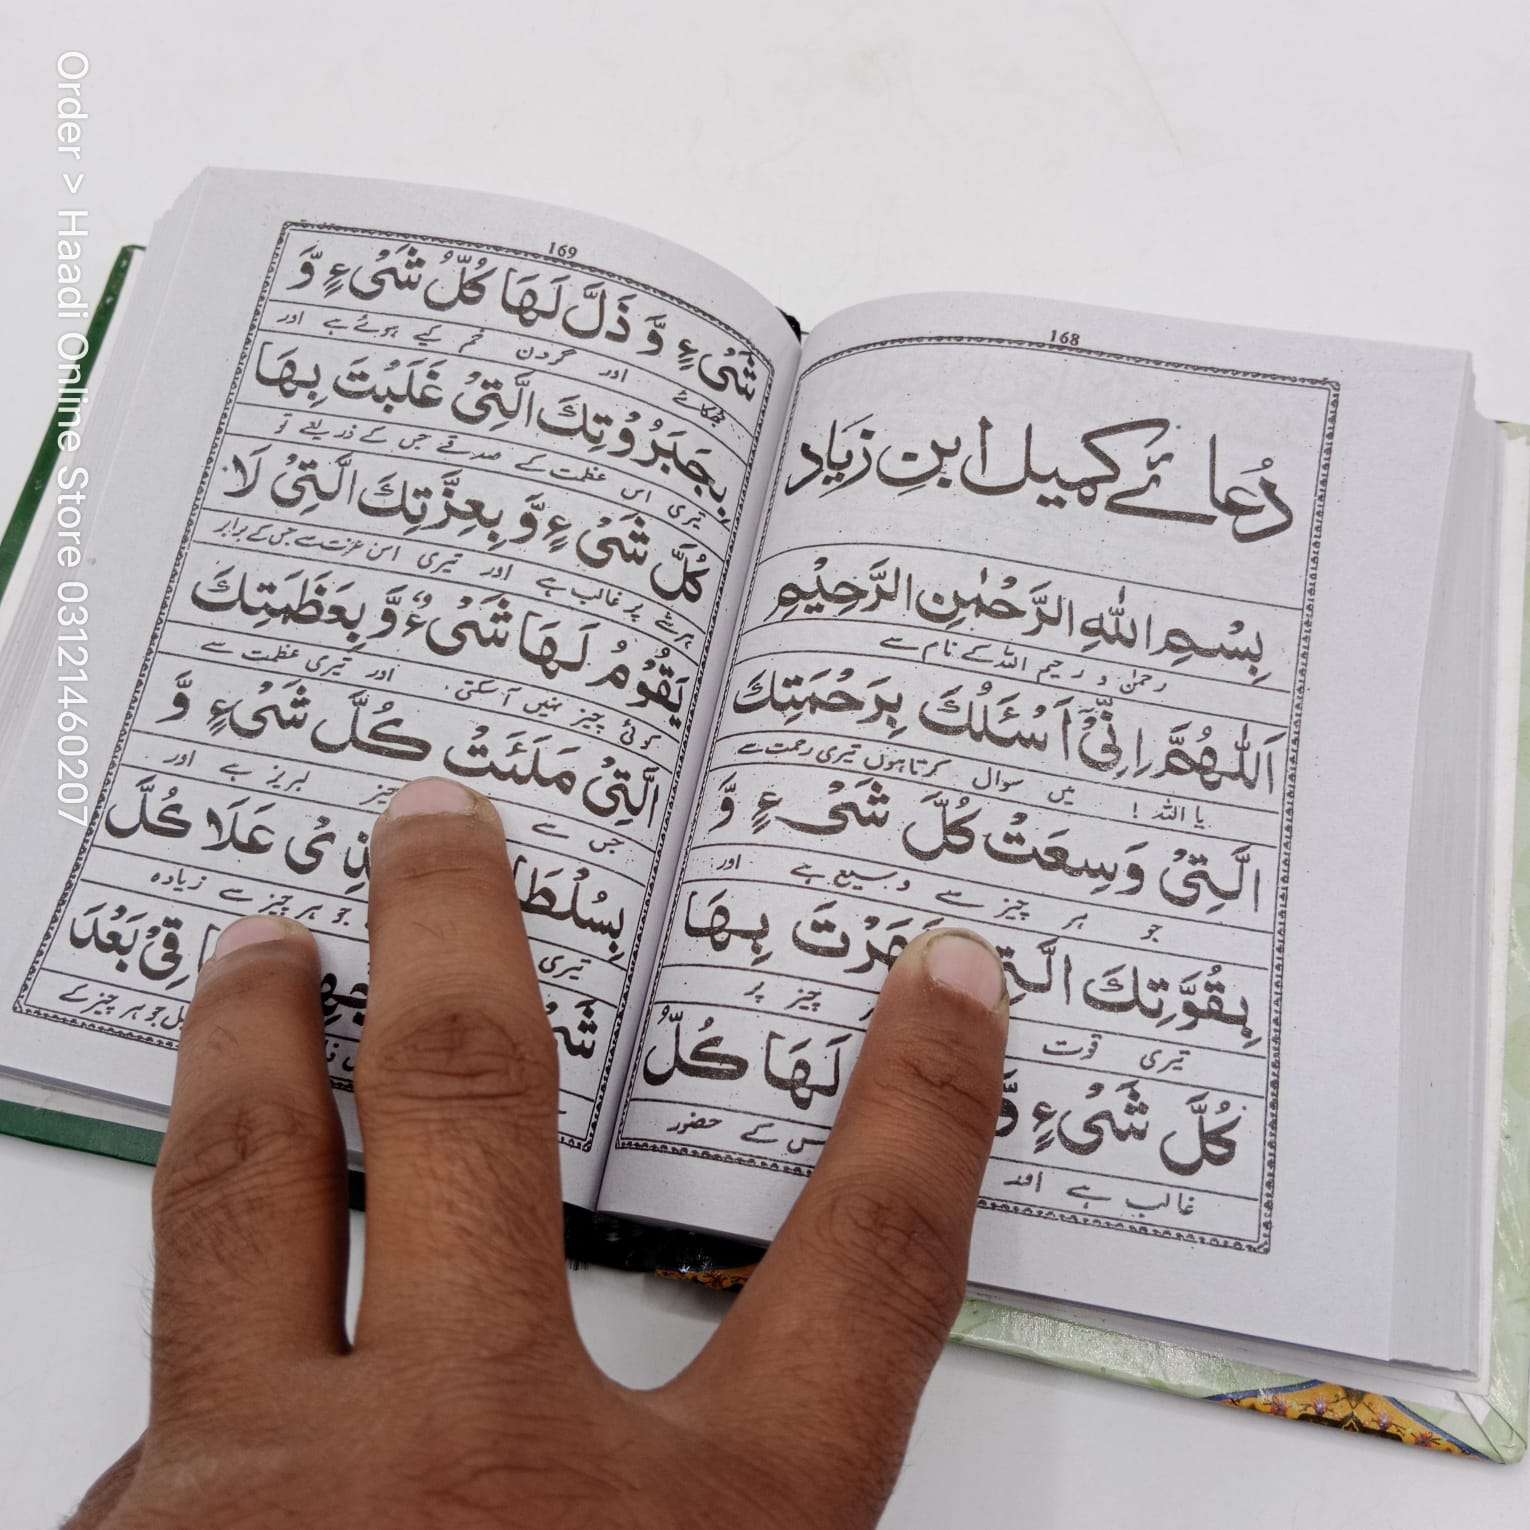 168
دُعائے کمیل ابنِ زیاد
بِسْمِ اللّٰهِ الرَّحْمٰنِ الرَّحِيْمِ
رحمٰن و رحیم اللہ کے نام سے
اَللّٰهُمَّ اِنِّيْٓ اَسْئَلُكَ بِرَحْمَتِكَ
یا اللہ ! میں سوال کرتا ہوں تیری رحمت سے
الَّتِيْ وَسِعَتْ كُلَّ شَيْءٍ وَّ
جو ہر چیز سے وسیع ہے اور
بِقُوَّتِكَ الَّتِيْ قَهَرْتَ بِهَا
تیری قوت چیز پر
كُلَّ شَيْءٍ وَّ لَهَا كُلُّ
غالب ہے اور کے حضور
169
شَيْءٍ وَّ ذَلَّ لَهَا كُلُّ شَيْءٍ وَّ
جھکائے اور گردن خم کیے ہوئے ہے اور
بِجَبَرُوْتِكَ الَّتِيْ غَلَبْتَ بِهَا
تیری اس عظمت کے صدقے جس کے ذریعے تو
كُلَّ شَيْءٍ وَّ بِعِزَّتِكَ الَّتِيْ لَا
ہر شے پر غالب ہے اور تیری اس عزت سے جس کے برابر
يَقُوْمُ لَهَا شَيْءٌ وَّ بِعَظَمَتِكَ
کوئی چیز نہیں آ سکتی . اور تیری عظمت سے
الَّتِيْ مَلَئَتْ كُلَّ شَيْءٍ وَّ
جس سے چیز لبریز ہے اور
عَلَا كُلَّ
تیری جو ہر چیز سے زیادہ
بَعْدَ
جو ہر چیز کے
Order > Haadi Online Store 03121460207